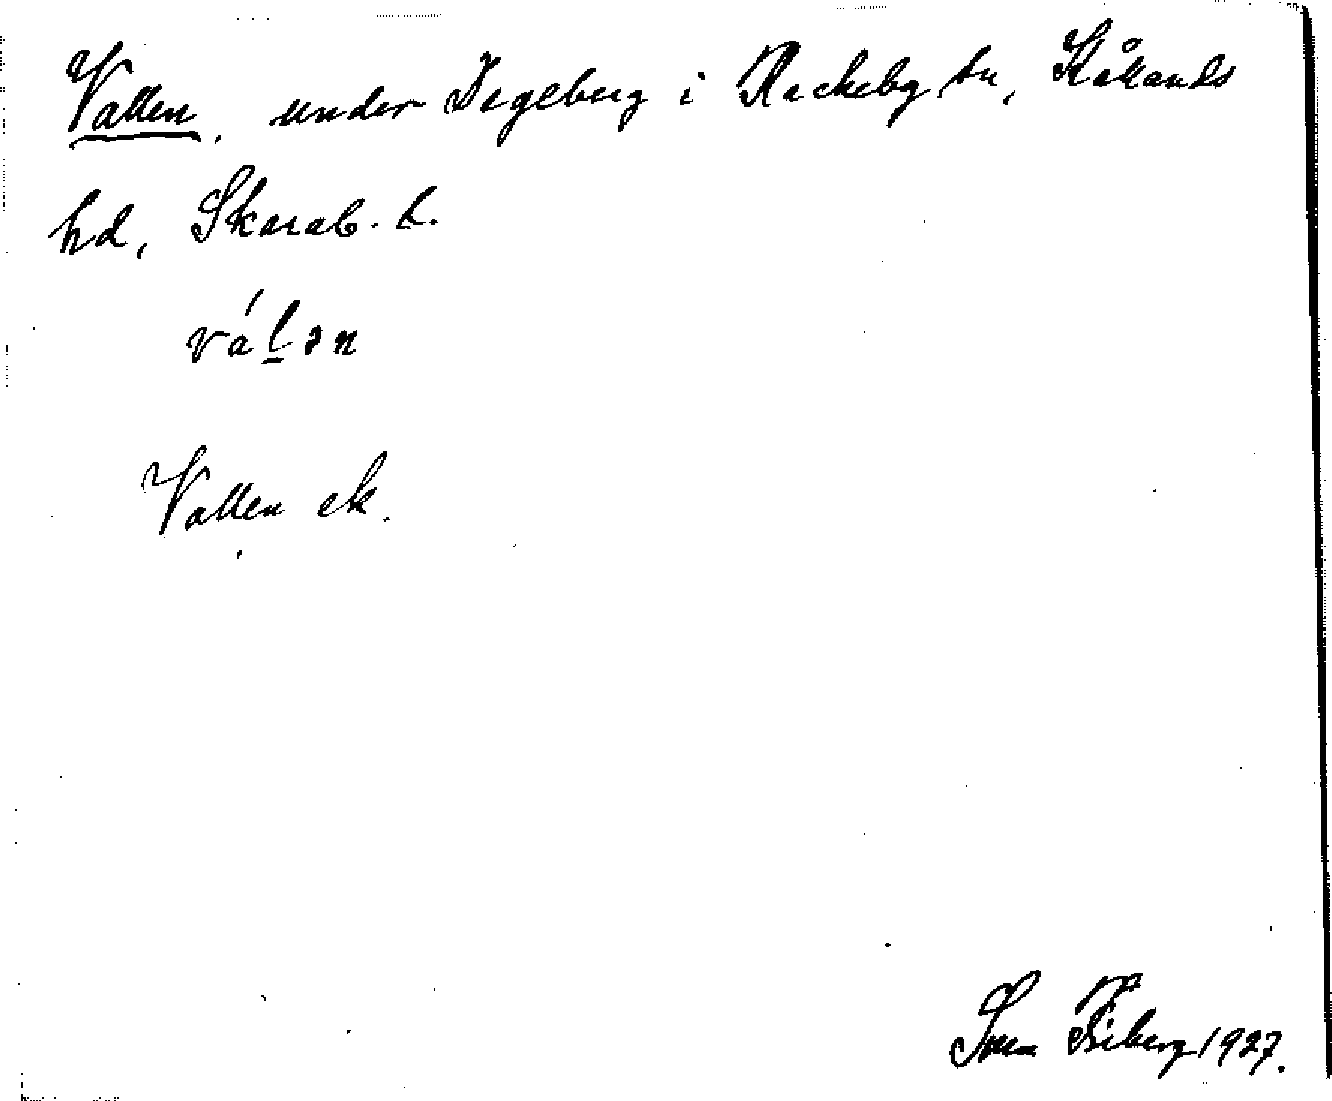 Vallen, under Degeberg i Rackeby sn, Kållands
hd, Skarab. l.
válən
Vallen ek.
Sven Friberg 1927.